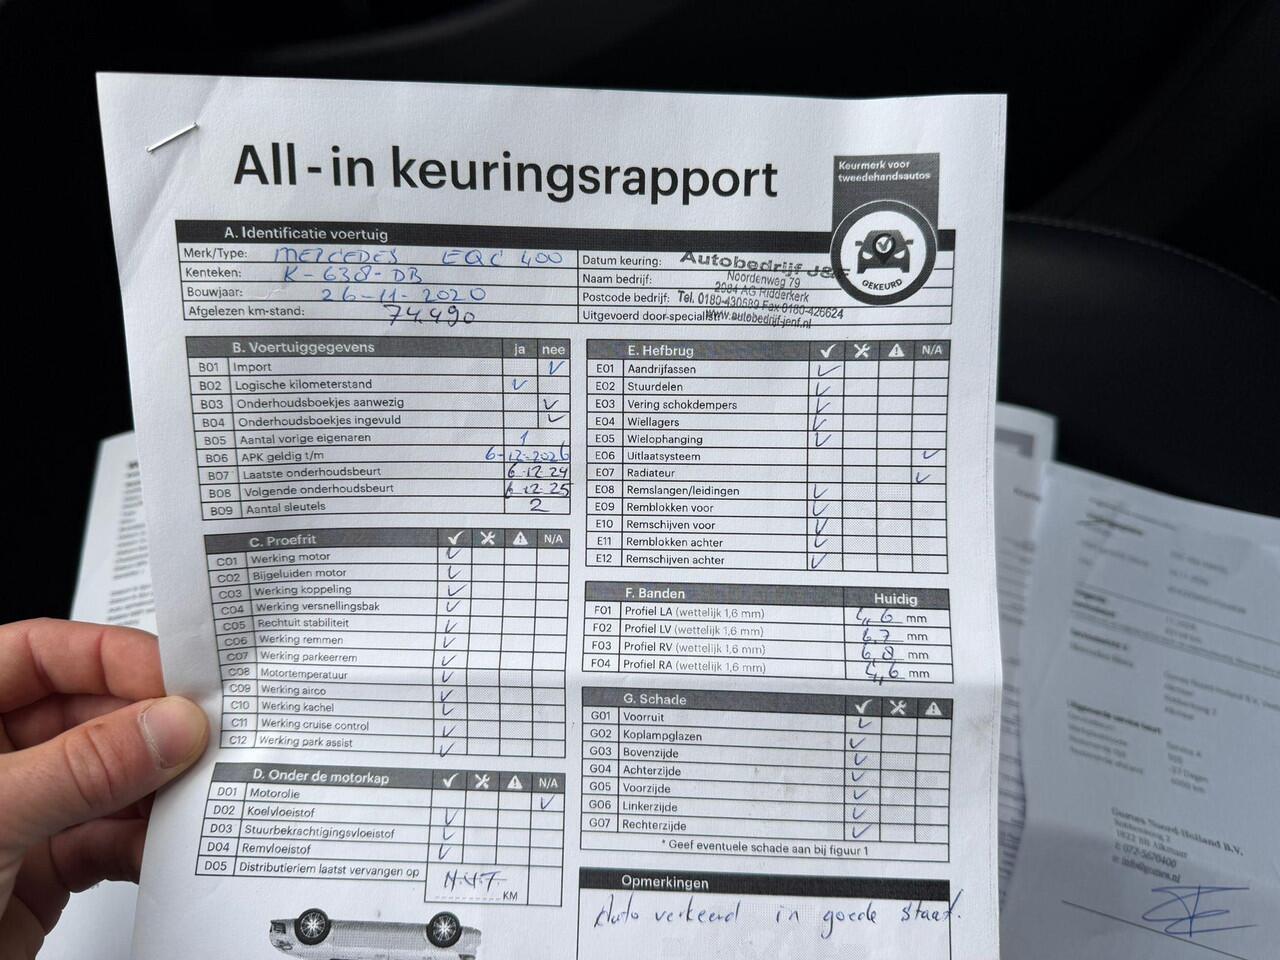 All-in keuringsrapport
Keurmerk voor
tweedehandsautos
GEKEURD
A. Identificatie voertuig
Merk/Type: MERCEDES EQC 400
Kenteken: K-638-DB
Bouwjaar: 26-11-2020
Afgelezen km-stand: 74.490
Datum keuring:
Naam bedrijf:
Postcode bedrijf:
Uitgevoerd door specialist:
Autobedrijf J&F
Noordenweg 79
2984 AG Ridderkerk
Tel. 0180-430589 Fax 0180-426624
www.autobedrijf-jenf.nl
B. Voertuiggegevens ja nee
B01 Import
B02 Logische kilometerstand
B03 Onderhoudsboekjes aanwezig
B04 Onderhoudsboekjes ingevuld
B05 Aantal vorige eigenaren 1
B06 APK geldig t/m 6-12-2026
B07 Laatste onderhoudsbeurt 6-12-24
B08 Volgende onderhoudsbeurt 6-12-25
B09 Aantal sleutels 2
C. Proefrit N/A
C01 Werking motor
C02 Bijgeluiden motor
C03 Werking koppeling
C04 Werking versnellingsbak
C05 Rechtuit stabiliteit
C06 Werking remmen
C07 Werking parkeerrem
C08 Motortemperatuur
C09 Werking airco
C10 Werking kachel
C11 Werking cruise control
C12 Werking park assist
D. Onder de motorkap N/A
D01 Motorolie
D02 Koelvloeistof
D03 Stuurbekrachtigingsvloeistof
D04 Remvloeistof
D05 Distributieriem laatst vervangen op
N.V.T.
KM
E. Hefbrug N/A
E01 Aandrijfassen
E02 Stuurdelen
E03 Vering schokdempers
E04 Wiellagers
E05 Wielophanging
E06 Uitlaatsysteem
E07 Radiateur
E08 Remslangen/leidingen
E09 Remblokken voor
E10 Remschijven voor
E11 Remblokken achter
E12 Remschijven achter
F. Banden Huidig
F01 Profiel LA (wettelijk 1,6 mm) 4,6 mm
F02 Profiel LV (wettelijk 1,6 mm) 6,7 mm
F03 Profiel RV (wettelijk 1,6 mm) 6,8 mm
F04 Profiel RA (wettelijk 1,6 mm) 4,6 mm
G. Schade
G01 Voorruit
G02 Koplampglazen
G03 Bovenzijde
G04 Achterzijde
G05 Voorzijde
G06 Linkerzijde
G07 Rechterzijde
* Geef eventuele schade aan bij figuur 1
Opmerkingen
Auto verkeerd in goede staat.
Gomes Noord-Holland B.V.
1822 BB Alkmaar
t: 072-5670400
e: info@gomes.nl